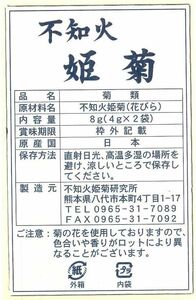 不知火
姫菊
品名 菊類
原材料名 不知火姫菊(花びら)
内容量 8g(4g×2袋)
賞味期限 枠外記載
原産国 日本
保存方法 直射日光、高温多湿の場所を
避け、涼しいところで保存し
てください。
製造元 不知火姫菊研究所
熊本県八代市本町4丁目1-17
TEL 0965-31-7089
FAX 0965-31-7092
ご注意:菊の花を使用しておりますので、
色合いや香りがロットにより異
なることがございます。
紙
外箱
プラ
内袋